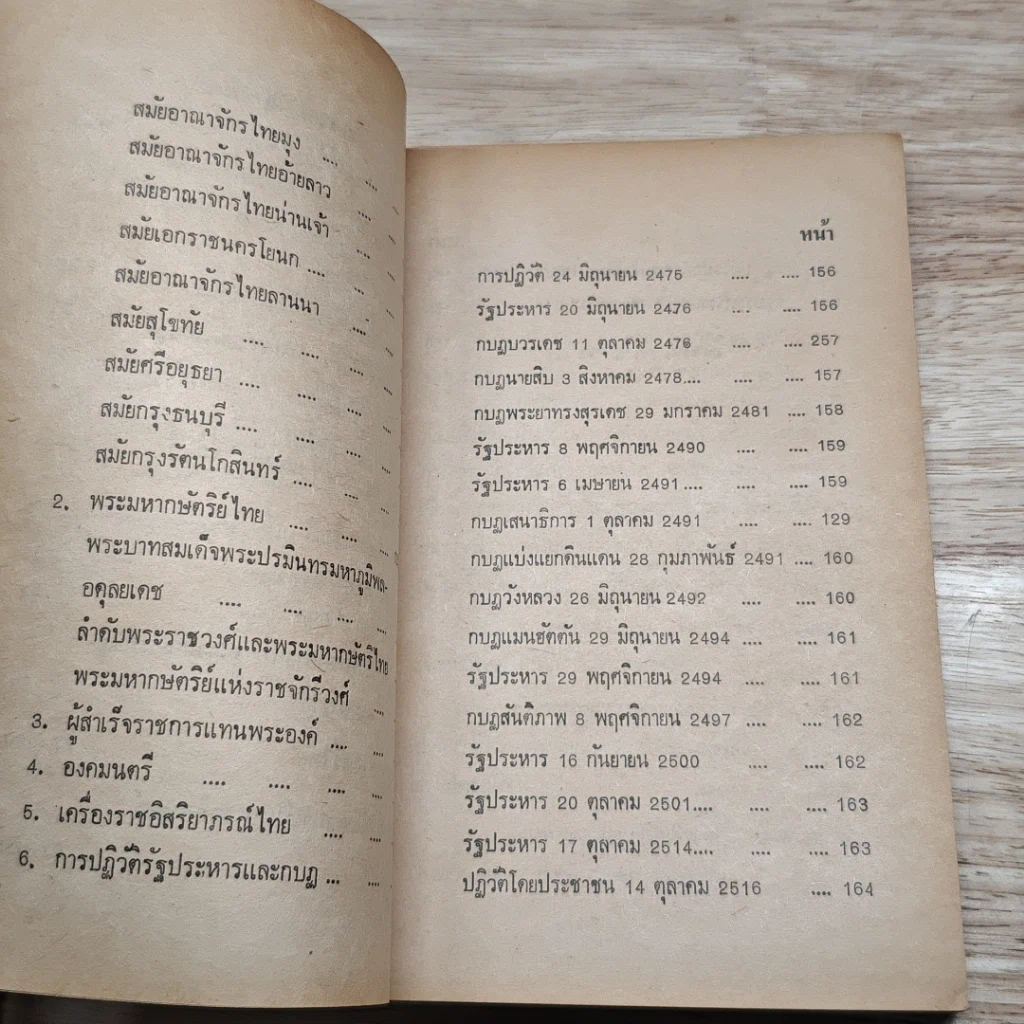 สมัยอาณาจักรไทยมุง ....
สมัยอาณาจักรไทยอ้ายลาว ....
สมัยอาณาจักรไทยน่านเจ้า ....
สมัยเอกราชนครโยนก .... ....
สมัยอาณาจักรไทยลานนา ....
สมัยสุโขทัย .... ....
สมัยศรีอยุธยา .... .... ....
สมัยกรุงธนบุรี .... .... ....
สมัยกรุงรัตนโกสินทร์ .... ....
2. พระมหากษัตริย์ไทย .... ....
พระบาทสมเด็จพระปรมินทรมหาภูมิพล-
อดุลยเดช .... .... ....
ลำดับพระราชวงศ์และพระมหากษัตริไทย
พระมหากษัตริย์แห่งราชจักรีวงศ์ ....
3. ผู้สำเร็จราชการแทนพระองค์ .... ....
4. องคมนตรี .... .... .... ....
5. เครื่องราชอิสริยาภรณ์ไทย .... ....
6. การปฏิวัติรัฐประหารและกบฎ ... ....
หน้า
การปฏิวัติ 24 มิถุนายน 2475 .... .... 156
รัฐประหาร 20 มิถุนายน 2476 .... .... 156
กบฎบวรเดช 11 ตุลาคม 2476 .... .... 257
กบฎนายสิบ 3 สิงหาคม 2478.... .... .... 157
กบฎพระยาทรงสุรเดช 29 มกราคม 2481 .... 158
รัฐประหาร 8 พฤศจิกายน 2490 .... .... 159
รัฐประหาร 6 เมษายน 2491.... .... .... 159
กบฎเสนาธิการ 1 ตุลาคม 2491 .... .... 129
กบฎแบ่งแยกดินแดน 28 กุมภาพันธ์ 2491 .... 160
กบฎวังหลวง 26 มิถุนายน 2492 .... .... 160
กบฎแมนฮัตตัน 29 มิถุนายน 2494 .... .... 161
รัฐประหาร 29 พฤศจิกายน 2494 .... .... 161
กบฎสันติภาพ 8 พฤศจิกายน 2497 .... .... 162
รัฐประหาร 16 กันยายน 2500 .... .... 162
รัฐประหาร 20 ตุลาคม 2501.... .... .... 163
รัฐประหาร 17 ตุลาคม 2514.... .... .... 163
ปฏิวัติโดยประชาชน 14 ตุลาคม 2516 .... 164